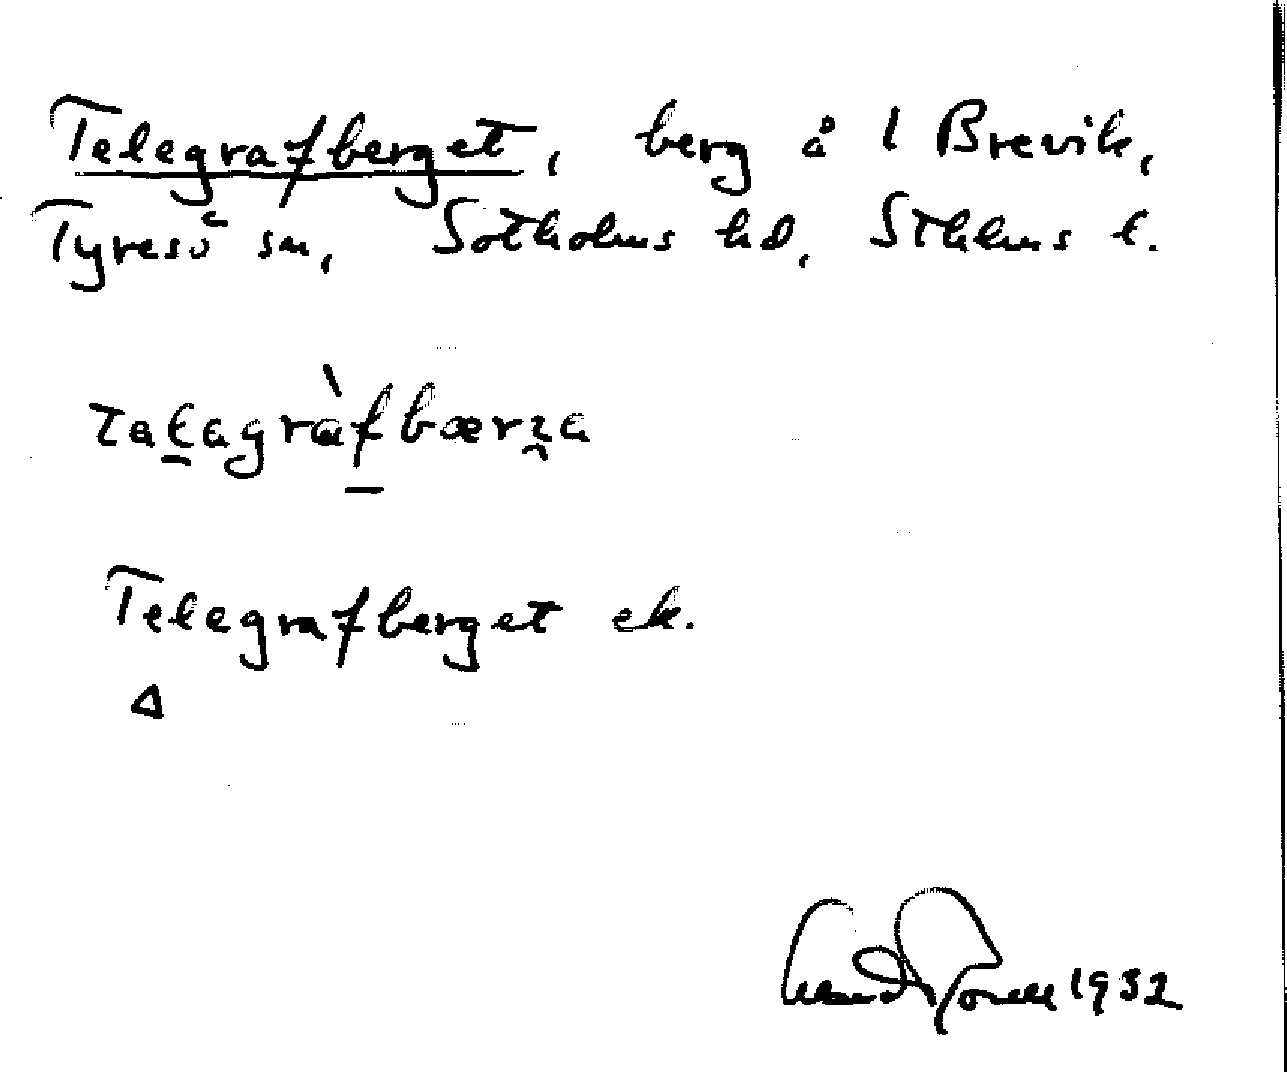 Telegrafberget, berg å 1 Brevik,
Tyresö sn, Sotholms hd, Sthlms l.
Telegrafberget ek.
Δ
1932